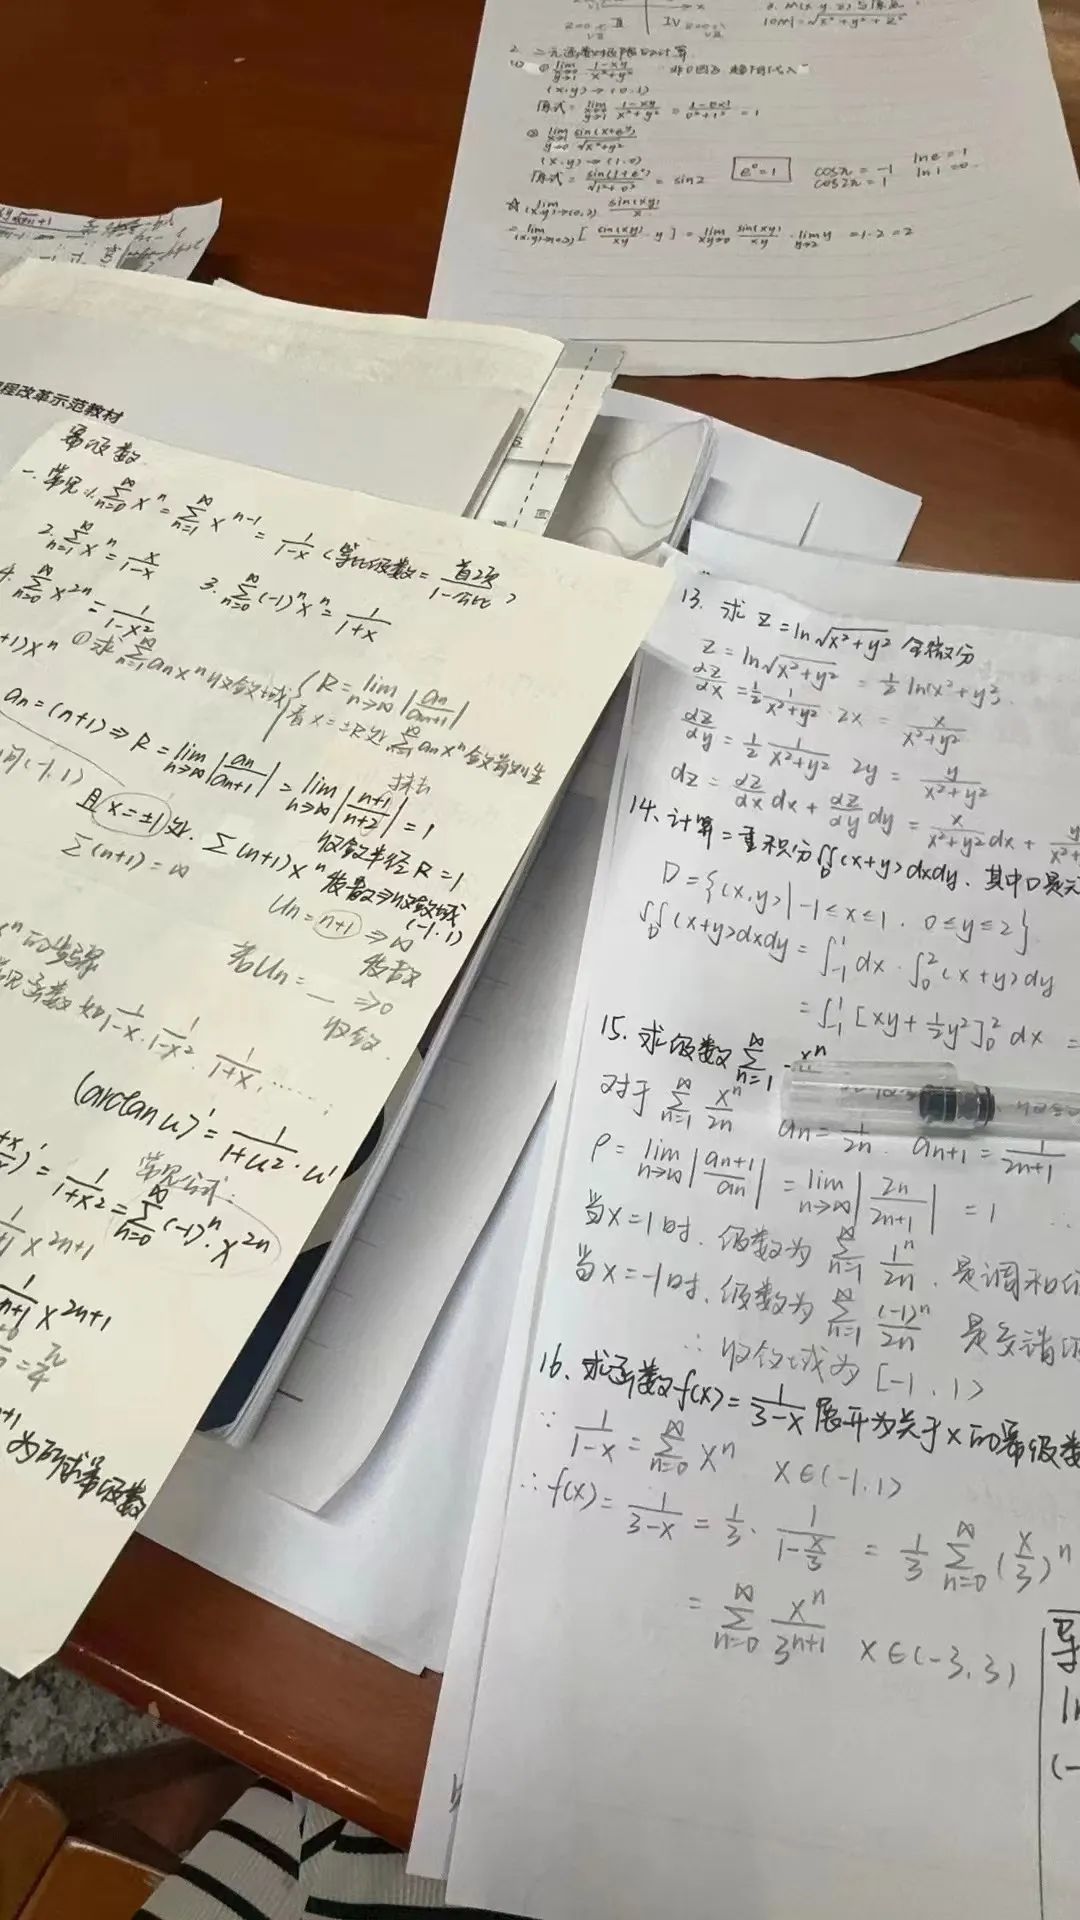 |OM|=√x²+y²+z²
2. 二元函数对极限的计算
① lim x→0 y→1 (1-xy)/(x²+y²)
(x,y)→(0,1)
原式= lim x→0 y→1 (1-xy)/(x²+y²) = (1-0×1)/(0²+1²) = 1
② lim x→1 y→0 sin(x+e^y)/√x²+y²
(x,y)→(1,0)
原式= sin(1+e⁰)/√1²+0² = sin2 e⁰=1 cosπ=-1 lne=1
cos2π=1 ln1=0
☆ lim (x,y)→(0,2) sin(xy)/x
= lim (x,y)→(0,2) [sin(xy)/xy · y] = lim xy→0 sin(xy)/xy · lim y→2 y = 1·2=2
程改革示范教材
幂级数
一. 常见 1. ∑n=0^∞ x^n = ∑n=1^∞ x^(n-1) = 1/(1-x) (等比级数= 首项/(1-公比))
2. ∑n=1^∞ x^n = x/(1-x)
3. ∑n=0^∞ (-1)^n x^n = 1/(1+x)
4. ∑n=0^∞ x^(2n) = 1/(1-x²)
+1)x^n ① 求∑n=1^∞ an x^n 收敛域 { R=lim n→∞ |an/an+1|
看x=±R处∑ an x^n 敛散性
an=(n+1)⇒R=lim n→∞ |an/an+1| = lim n→∞ |(n+1)/(n+2)| = 1
收敛半径R=1
间(-1,1)
且x=±1处. ∑(n+1)x^n 发散⇒收敛域(-1,1)
∑(n+1)=∞
Un=n+1⇒∞ 发散
若Un=__⇒0 收敛.
x^n的步骤
常见函数如 1/(1-x). 1/(1-x²). 1/(1+x). ……
(arctan u)'= 1/(1+u²)·u'
常见公式:
)'= 1/(1+x²) = ∑n=0^∞ (-1)^n · x^(2n)
x^(2n+1)
x^(2n+1)
= π/4
为所求幂级数
13. 求 Z=ln√x²+y² 全微分
Z=ln√x²+y² = 1/2 ln(x²+y²).
dz/dx = 1/2 · 1/(x²+y²) · 2x = x/(x²+y²)
dz/dy = 1/2 · 1/(x²+y²) 2y = y/(x²+y²)
dz = dz/dx dx + dz/dy dy = x/(x²+y²) dx + y/(x²+
14. 计算二重积分∬D(x+y)dxdy. 其中D是
D={(x,y)|-1≤x≤1. 0≤y≤2}
∬D(x+y)dxdy = ∫-1^1 dx · ∫0^2 (x+y)dy
= ∫-1^1 [xy+1/2y²]0^2 dx =
15. 求级数∑n=1^∞ x^n
对于∑n=1^∞ x^n/2n an=1/2n. an+1=1/(2n+1)
ρ = lim n→∞ |an+1/an| = lim n→∞ |2n/(2n+1)| = 1
当x=1时. 级数为∑n=1^∞ 1^n/2n. 是调和
当x=-1时. 级数为∑n=1^∞ (-1)^n/2n 是交错
∴收敛域为[-1.1)
16. 求函数f(x)=1/(3-x) 展开为关于x的幂级数
∵ 1/(1-x) = ∑n=0^∞ x^n x∈(-1.1)
∴f(x)= 1/(3-x) = 1/3 · 1/(1-x/3) = 1/3 ∑n=0^∞ (x/3)^n
= ∑n=0^∞ x^n/3^(n+1) x∈(-3.3)